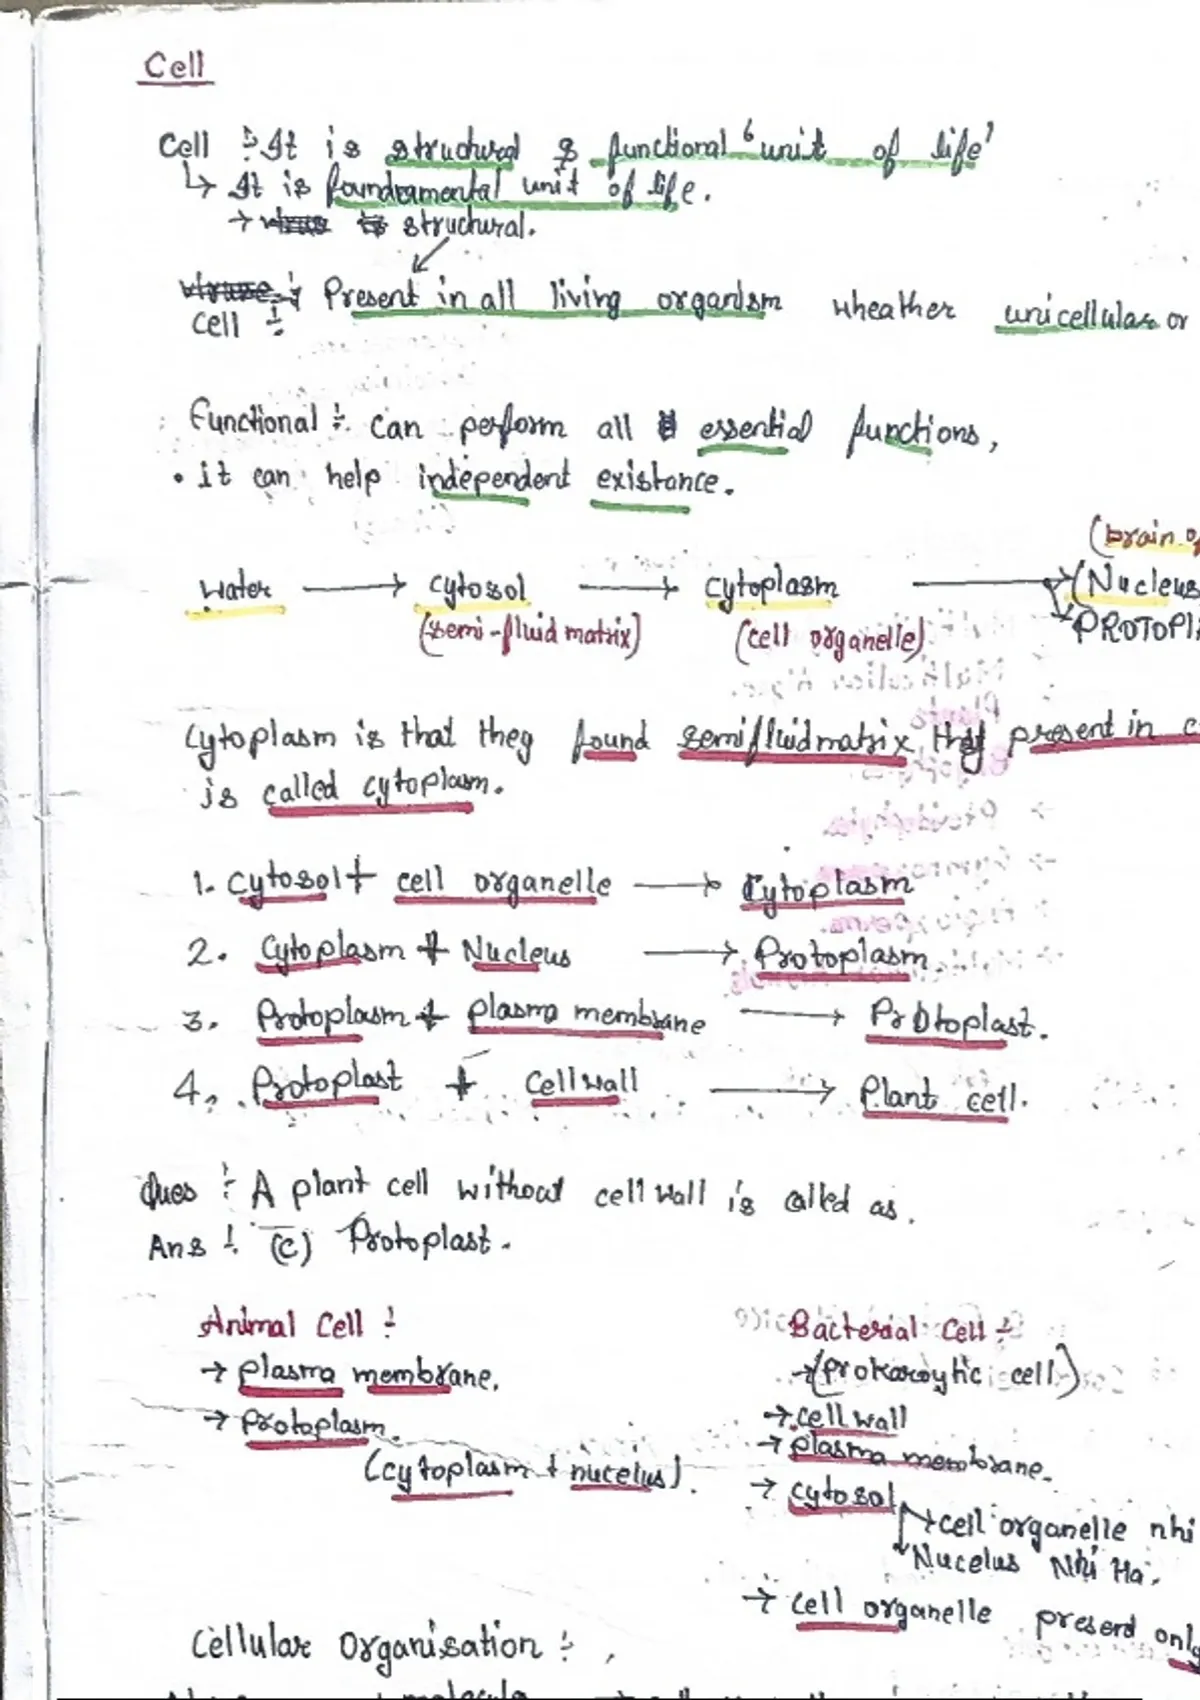 Cell
Cell :- It is structural & functional 'unit of life'
↳ It is foundramental unit of life.
→ is structural.
Present in all living organism wheather unicellular or
Cell :-
Functional :- Can perform all essential functions,
• it can help independent existance.
(brain of
Water → cytosol → cytoplasm → (Nucleus
(semi-fluid matrix) (cell organelle) PROTOPL
Cytoplasm is that they found semifluid matrix they present in c
is called cytoplasm.
1. Cytosol + cell organelle → Cytoplasm
2. Cytoplasm + Nucleus → Protoplasm
3. Protoplasm + plasma membrane → Protoplast.
4. Protoplast + Cell wall → Plant cell.
Ques :- A plant cell without cell wall is called as.
Ans :- (C) Protoplast.
Animal Cell :-
→ plasma membrane.
→ Protoplasm.
(cytoplasm + nucelus).
Bacterial Cell :-
→ (prokaroytic cell)
→ cell wall
→ plasma membrane.
→ cytosol
→ cell organelle nhi
Nucelus Nhi Ha.
→ cell organelle present only
Cellular Organisation :-